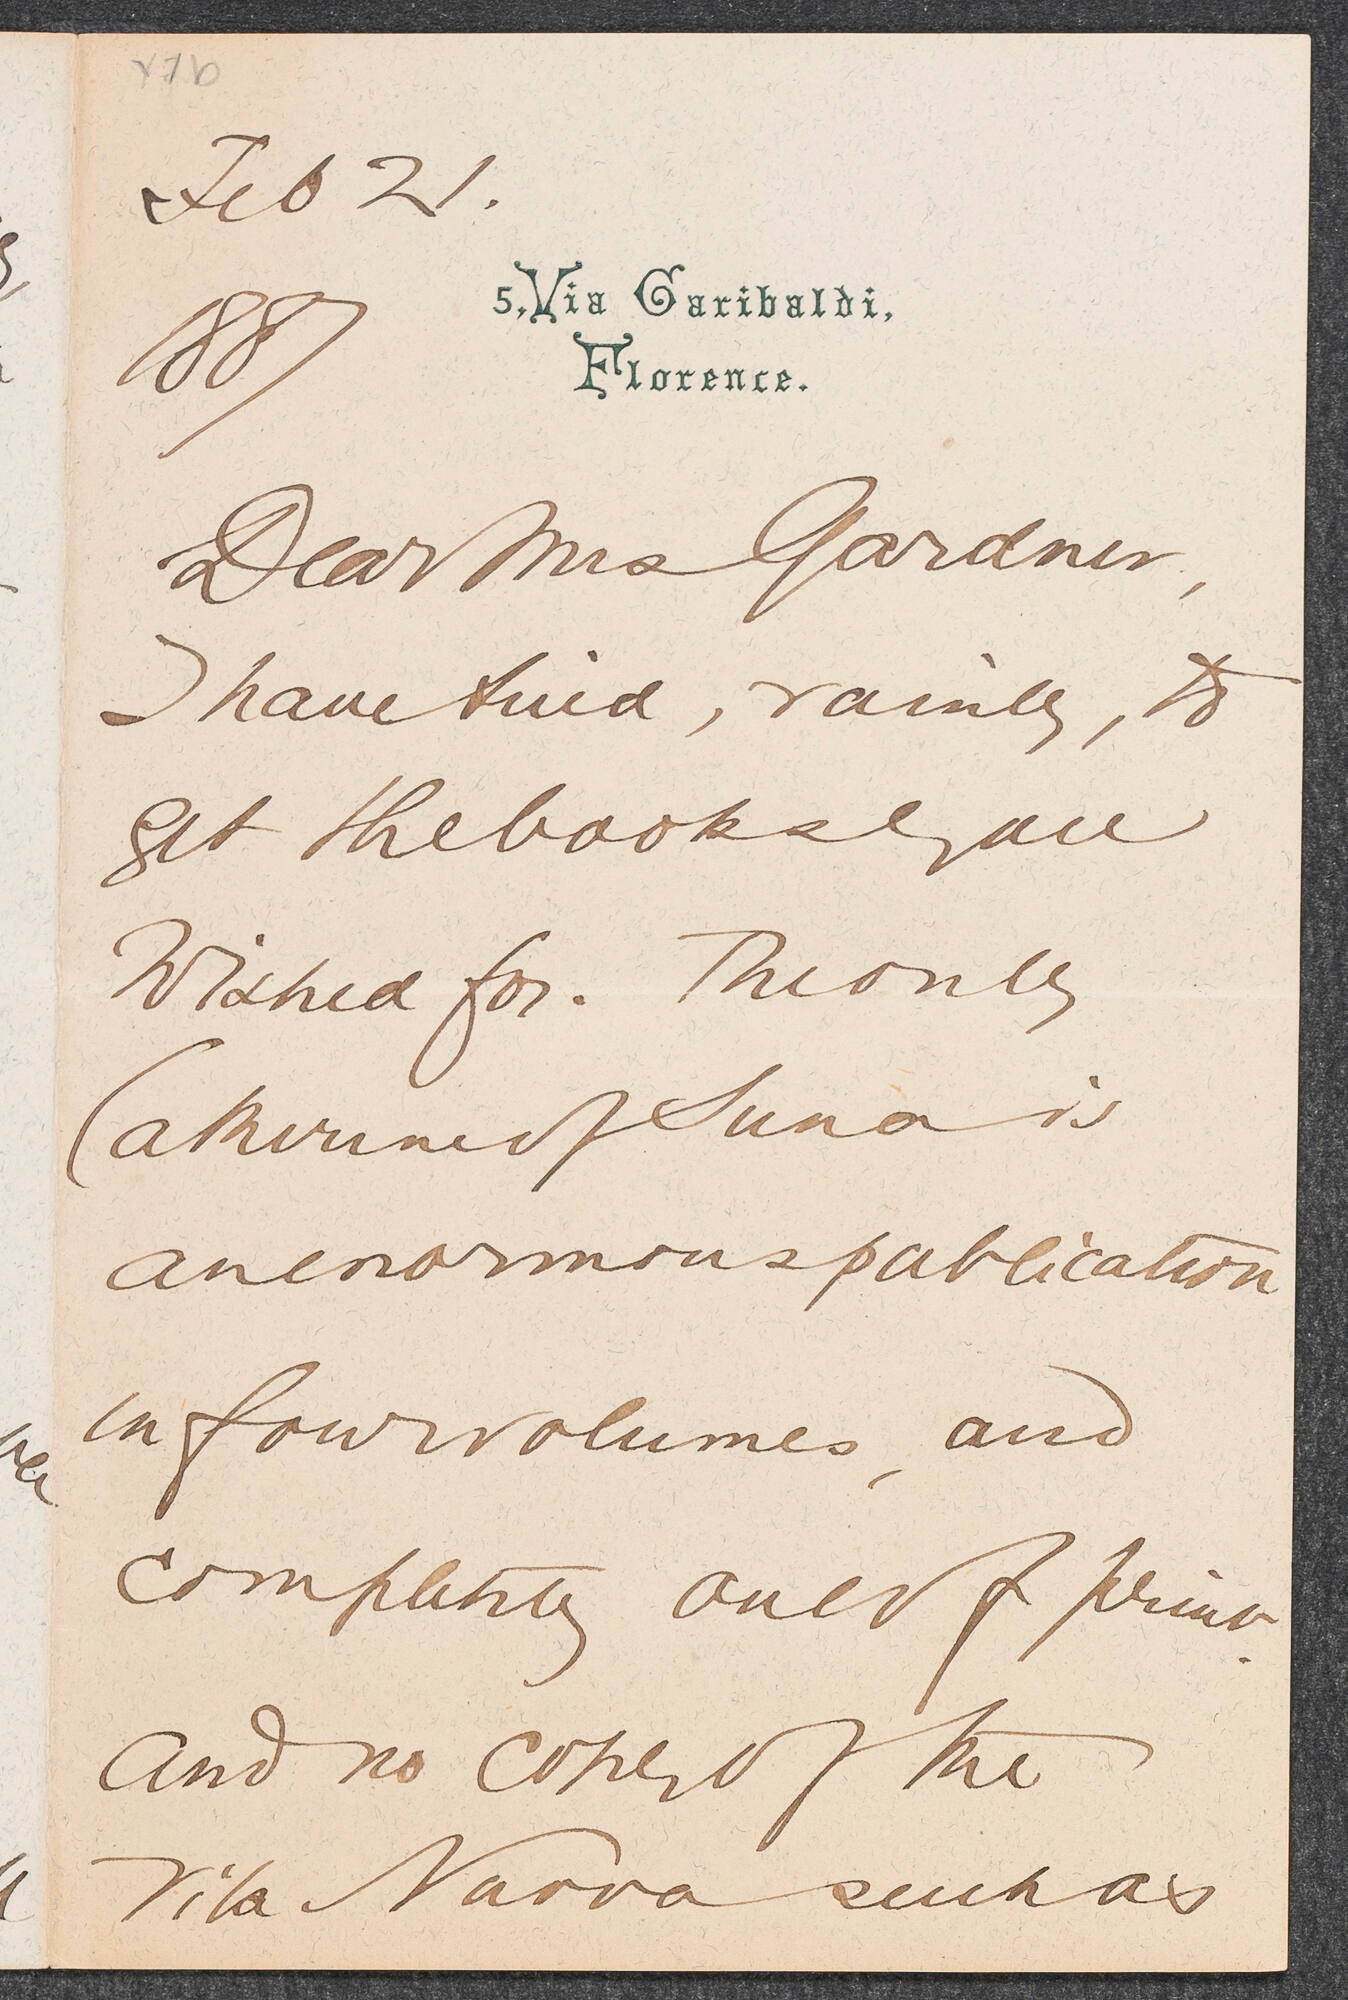 Feb 21.
1887
5, Via Garibaldi,
Florence.
Dear Mrs Gardner,
I have tried, vainly, to
get the books you
wished for. The only
Caterina of Siena is
an enormous publication
in four volumes, and
completely out of print.
and no copy of the
Vita Nuova such as